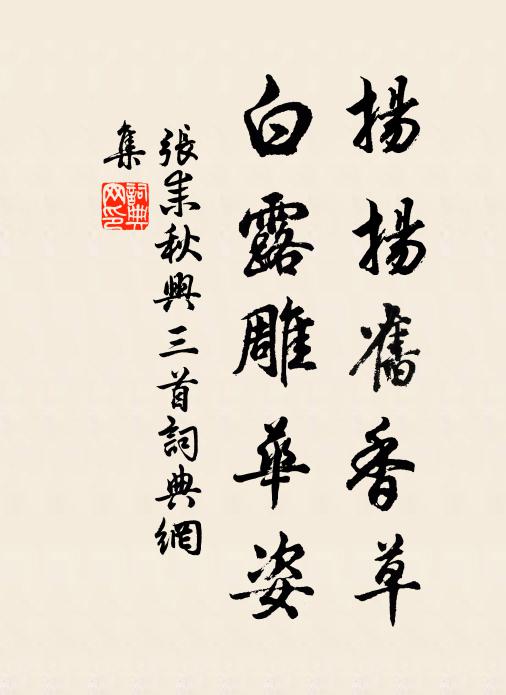 揚揚舊香草
白露雕華姿
張耒秋興三首詞典網
集
詞典
网印